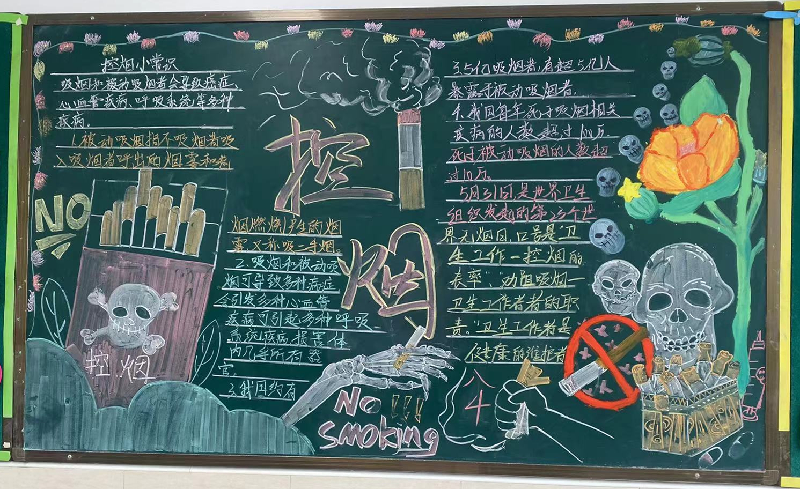 控烟小常识
吸烟和被动吸烟者会导致癌症,
心血管疾病,呼吸系统等多种
疾病。
1.被动吸烟指不吸烟者吸
入吸烟者呼出的烟雾和者
烟燃烧产生的烟
雾又称吸二手烟
2.吸烟和被动吸
烟可导致多种癌症
会引发多种心血管
疾病可引起多种呼吸
系统疾病损害体
内几乎所有器
官
3.我国约有
3.5亿吸烟者,有超5亿人
暴露于被动吸烟者.
4.我国每年死于吸烟相关
疾病的人数超过100万
死于被动吸烟的人数超
过10万.
5月31日,是世界卫生
组织发起的第23个世
界无烟日,口号是:卫
生工作—控烟的
表率,劝阻吸烟—
卫生工作者的职
责:卫生工作者是
健康的维护者
控
烟
NO
控烟
NO!!!
SMOKING
八4